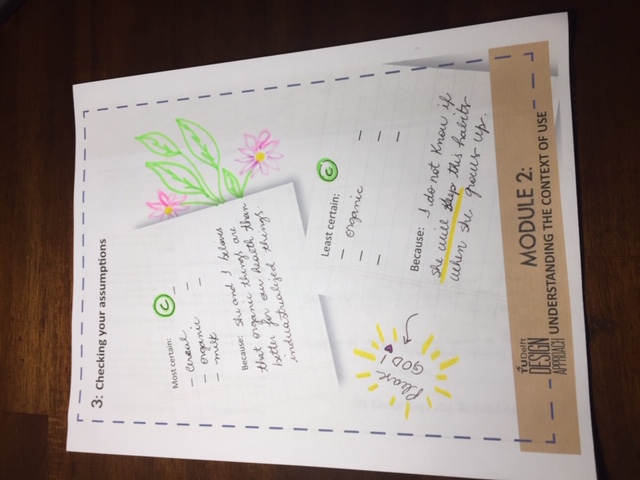 3: Checking your assumptions
Most certain: C
- cereal -
- organic -
- milk -
Because: She and I beleves
that organic things are
better for our health than
industrialized things.
Least certain: C
- organic -
- -
- -
Because: I do not know if
she will keep this habits
when she grows up.
Please
GOD!
TU Delft
DESIGN
APPROACH
MODULE 2:
UNDERSTANDING THE CONTEXT OF USE